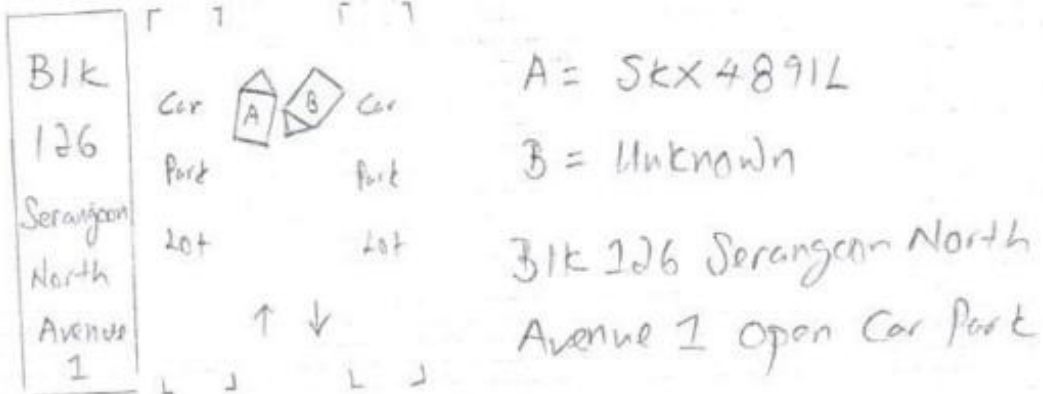 Blk
126
Serangoon
North
Avenue
1
Car
Park
Lot
A
B
Car
Park
Lot
A = SKX4891L
B = Unknown
Blk 126 Serangoon North
Avenue 1 Open Car Park